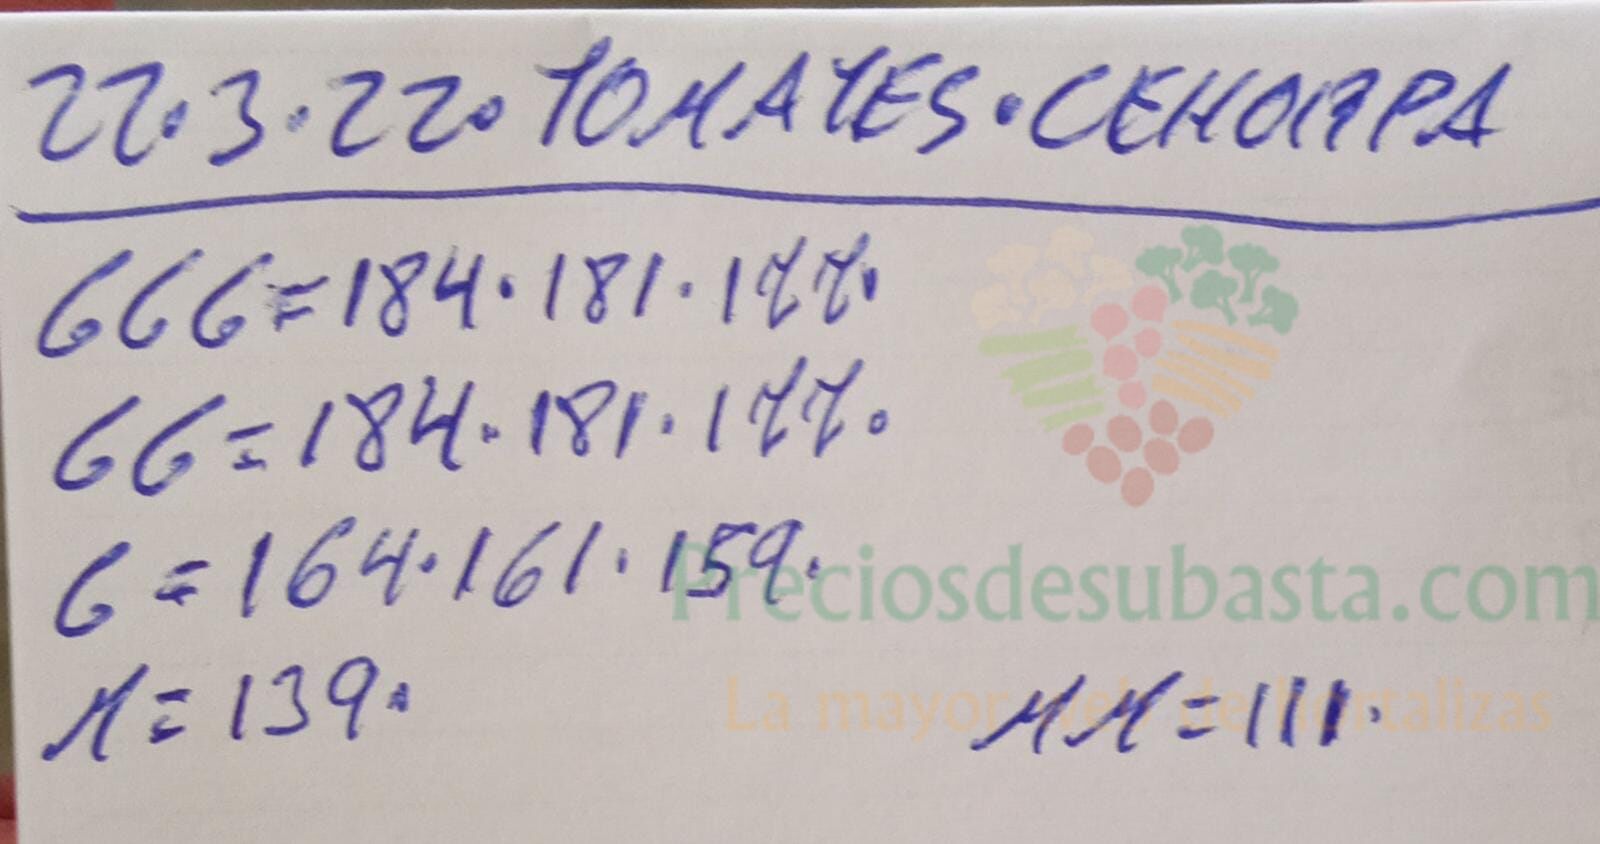 22.3.22. TOMATES. CEHORPA
GGG=184.181.177.
GG=184.181.177.
G=164.161.159.
Preciosdesubasta.com
La mayor web de hortalizas
M=139. MM=111.